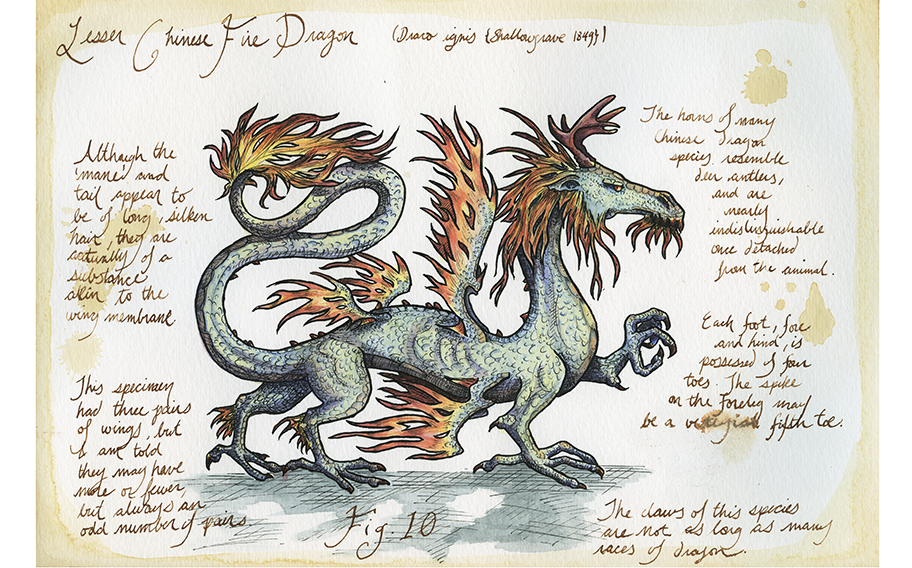 Lesser Chinese Fire Dragon (Draco ignis {Shallowgrave 1849})
Although the
'mane' and
tail appear to
be of long, silken
hair, they are
actually of a
substance
akin to the
wing membrane.
This specimen
had three pairs
of wings, but
I am told
they may have
more or fewer,
but always an
odd number of pairs
The horns of many
Chinese Dragon
species resemble
deer antlers,
and are
nearly
indistinguishable
once detached
from the animal.
Each foot, fore
and hind, is
possessed of four
toes. The spike
on the foreleg may
be a vestigial fifth toe.
The claws of this species
are not as long as many
races of dragon.
Fig. 10